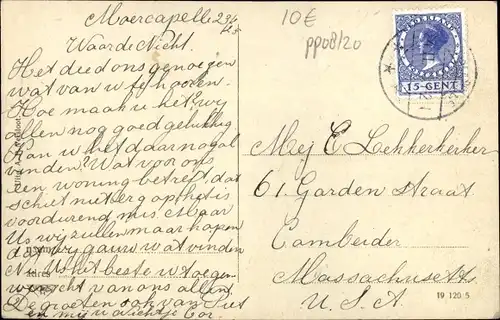 Moercapelle 29/6
Waarde Nicht.
Het deed ons genoegen
wat van u te hooren.
Hoe maak u het, wij
allen nog goed gelukkig
Kan u het daar nogal
vinden? Wat voor ons
een woning betreft, dat
schiet niet erg op, het is
voordurend mis. Maar
Us wij zullen maar hopen
dat wij gauw wat vinden
N. Us het beste u toegen
wenscht van ons allen
De groeten ook van Siet
en mij u nichtje Cor
10€
pp08/20
NEDERLAND
15-CENT
Mej E Lekkerkerker
61 Garden straat
Cambeider
Massachusetts
U.S.A
19 120 5